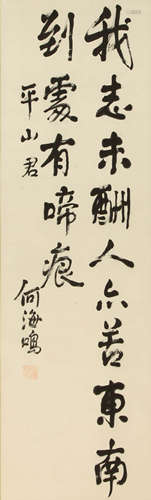 我志未酬人亦苦東南
到處有啼痕
平山君
何海鳴